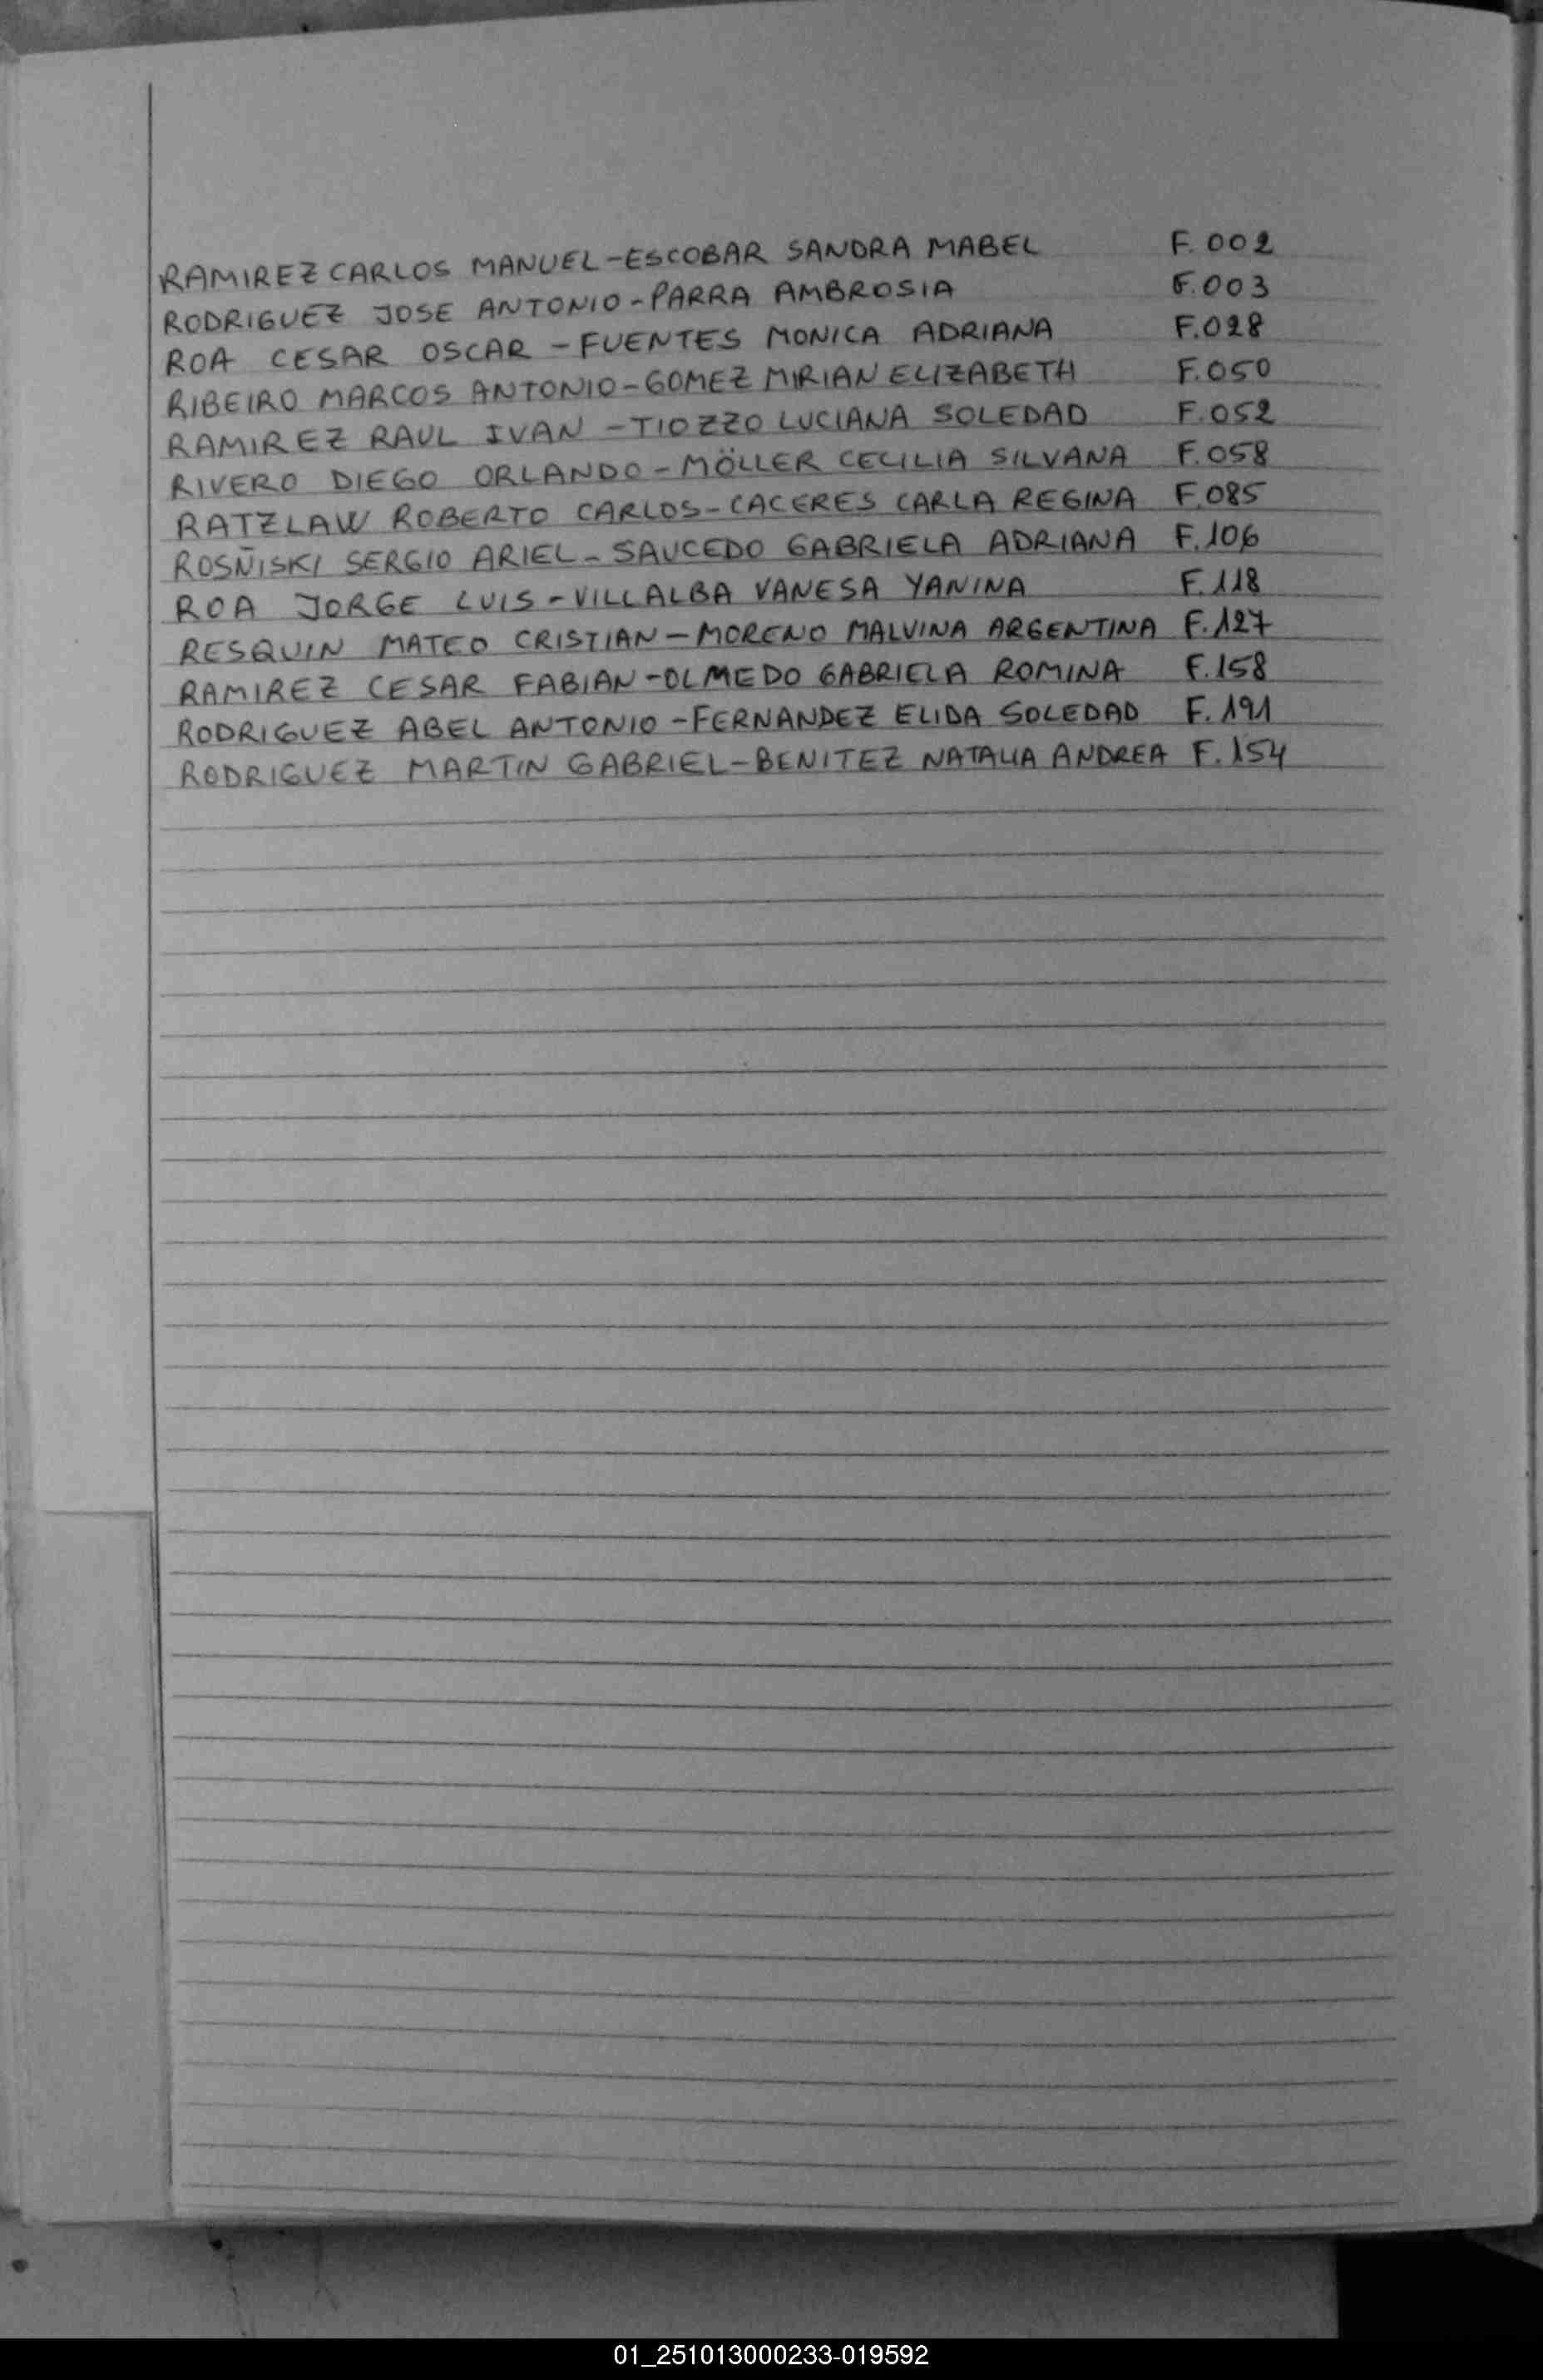 RAMIREZ CARLOS MANUEL-ESCOBAR SANDRA MABEL F. 002
RODRIGUEZ JOSE ANTONIO-PARRA AMBROSIA F.003
ROA CESAR OSCAR - FUENTES MONICA ADRIANA F.028
RIBEIRO MARCOS ANTONIO-GOMEZ MIRIAN ELIZABETH F.050
RAMIREZ RAUL IVAN - TIOZZO LUCIANA SOLEDAD F.052
RIVERO DIEGO ORLANDO - MÖLLER CECILIA SILVANA F.058
RATZLAW ROBERTO CARLOS - CACERES CARLA REGINA F.085
ROSÑISKI SERGIO ARIEL - SAUCEDO GABRIELA ADRIANA F.106
ROA JORGE LUIS - VILLALBA VANESA YANINA F.118
RESQUIN MATEO CRISTIAN - MORENO MALVINA ARGENTINA F.127
RAMIREZ CESAR FABIAN - OLMEDO GABRIELA ROMINA F.158
RODRIGUEZ ABEL ANTONIO - FERNANDEZ ELIDA SOLEDAD F.191
RODRIGUEZ MARTIN GABRIEL - BENITEZ NATALIA ANDREA F.154
01_251013000233-019592